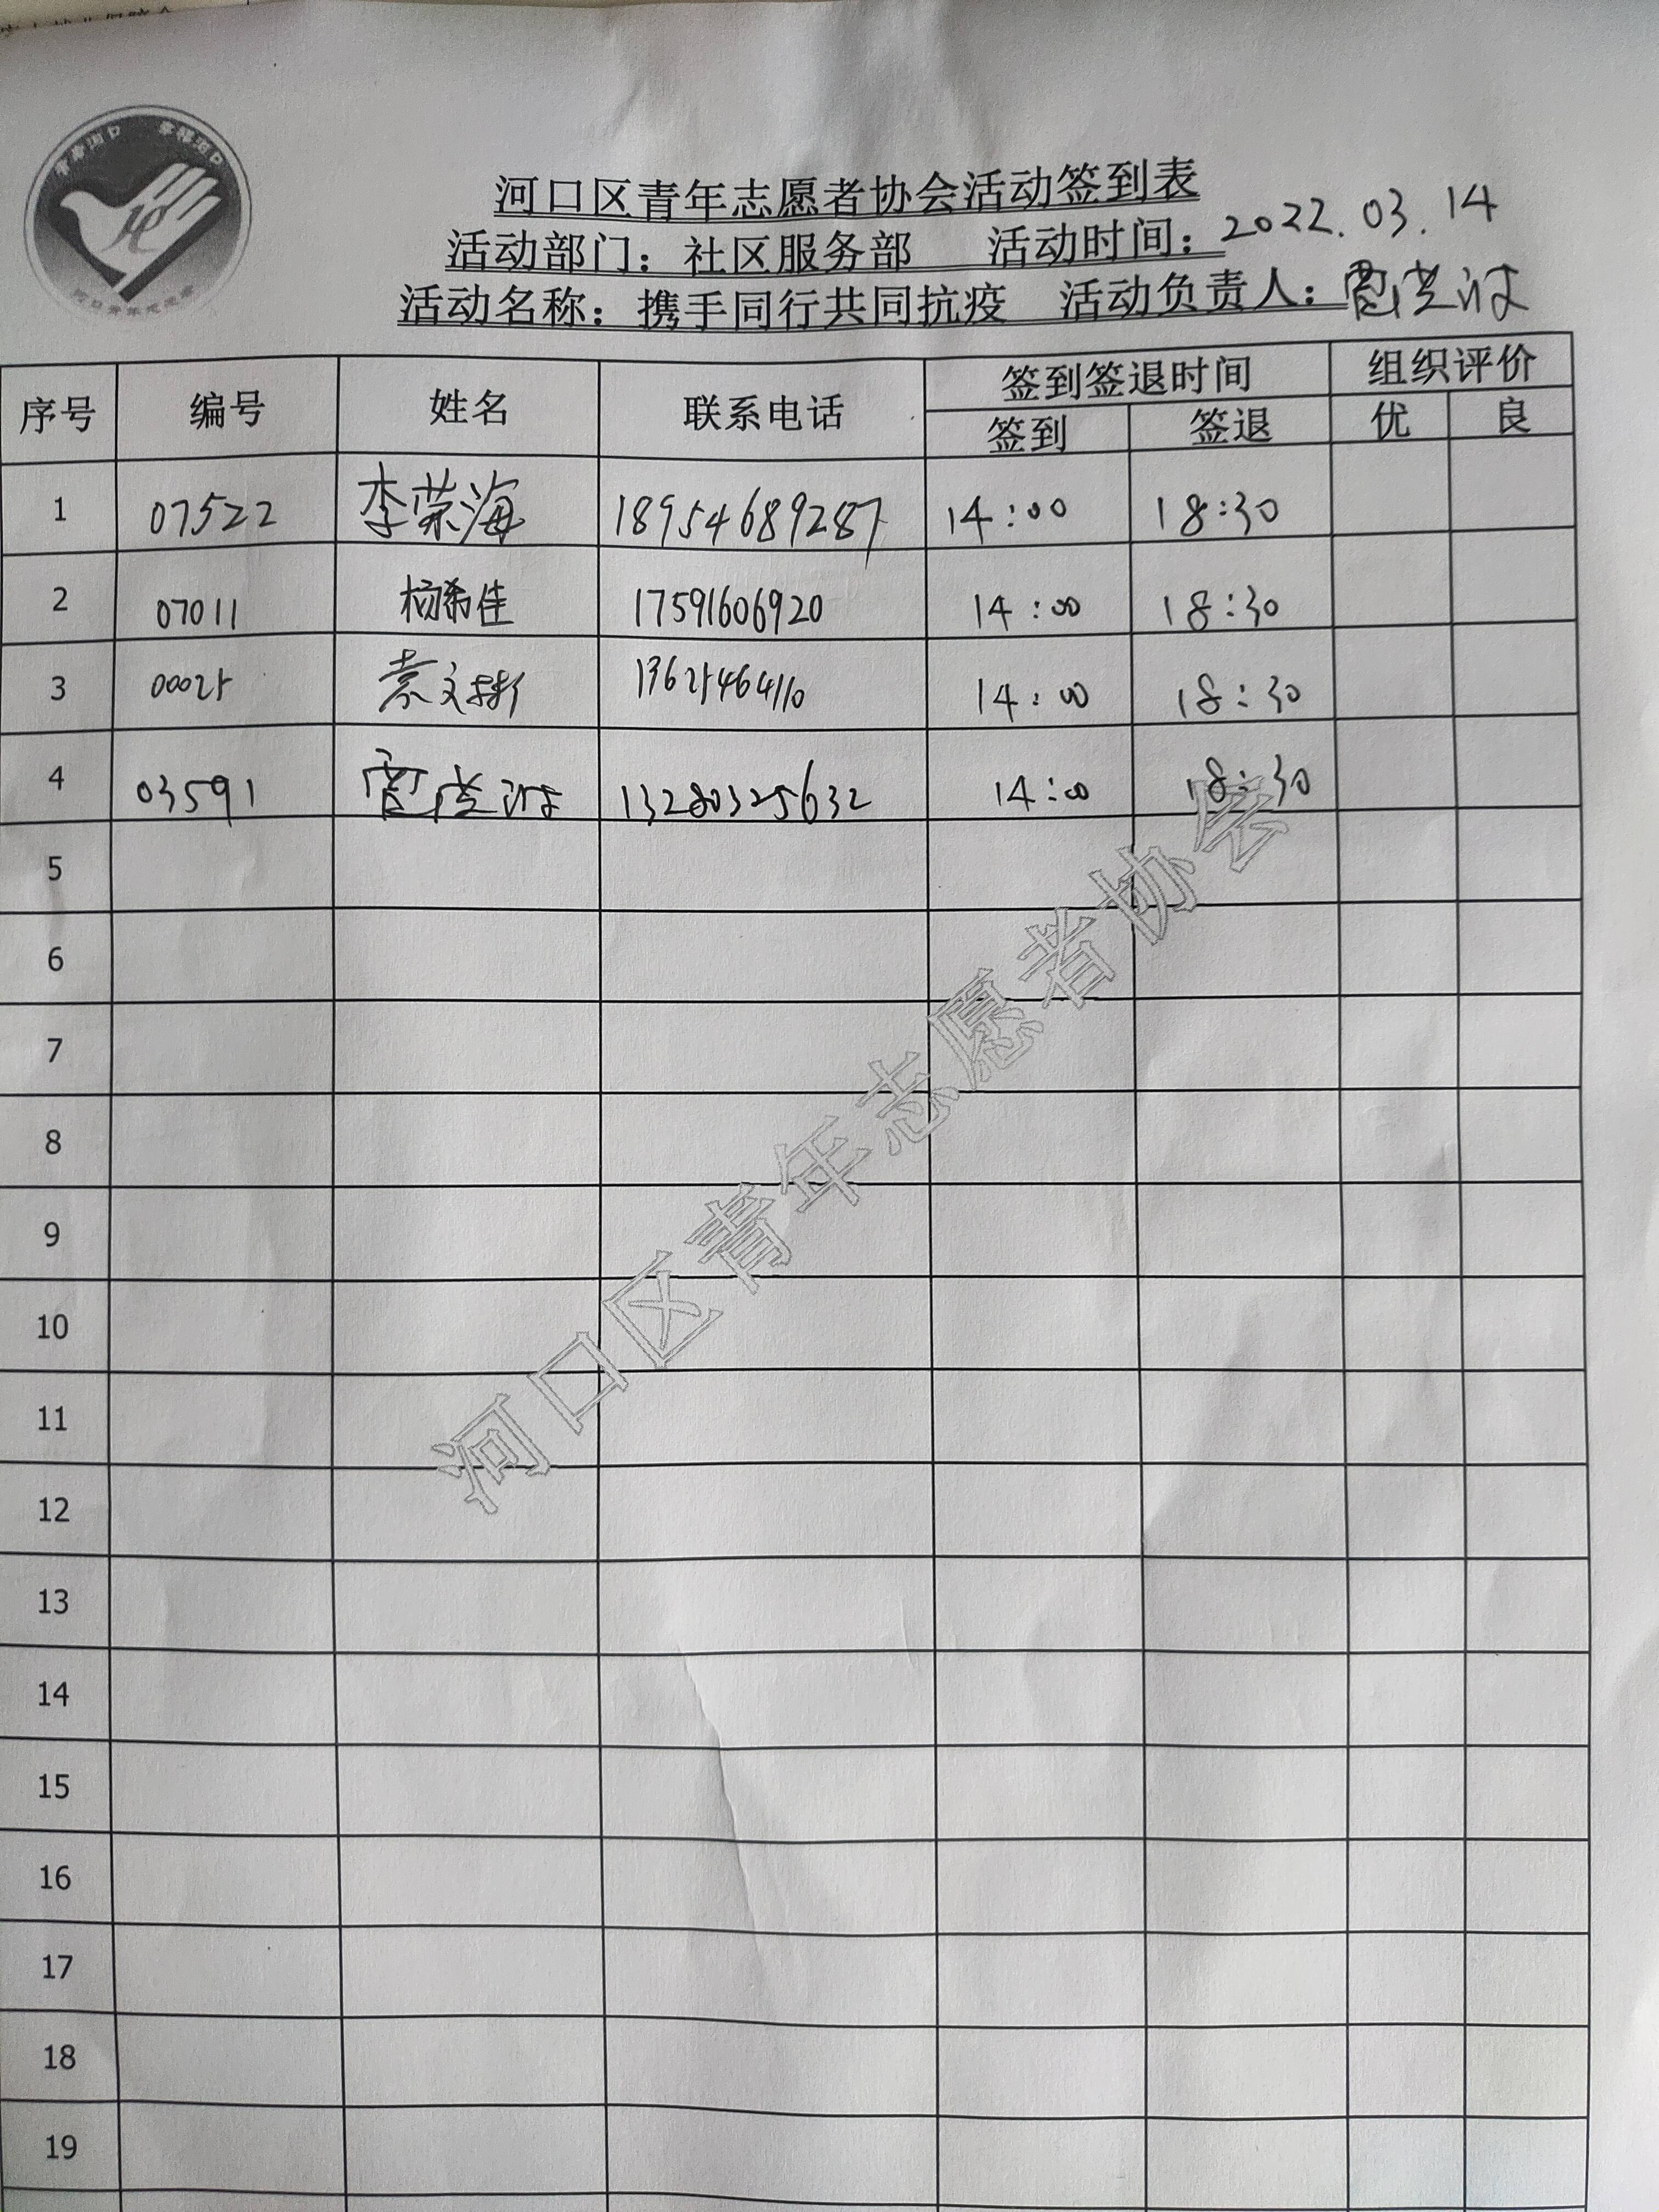 青春河口 幸福河口
河口区青年志愿者协会活动签到表
活动部门：社区服务部 活动时间：2022.03.14
活动名称：携手同行共同抗疫 活动负责人：
序号 编号 姓名 联系电话 签到签退时间 组织评价
签到 签退 优 良
1 07522 李荣海 18954689287 14:00 18:30
2 07011 杨希佳 17591606920 14:00 18:30
3 00025 袁文 13625464110 14:00 18:30
4 03591 13280325632 14:00 18:30
5
6
7
8
9
10
11
12
13
14
15
16
17
18
19
河口区青年志愿者协会